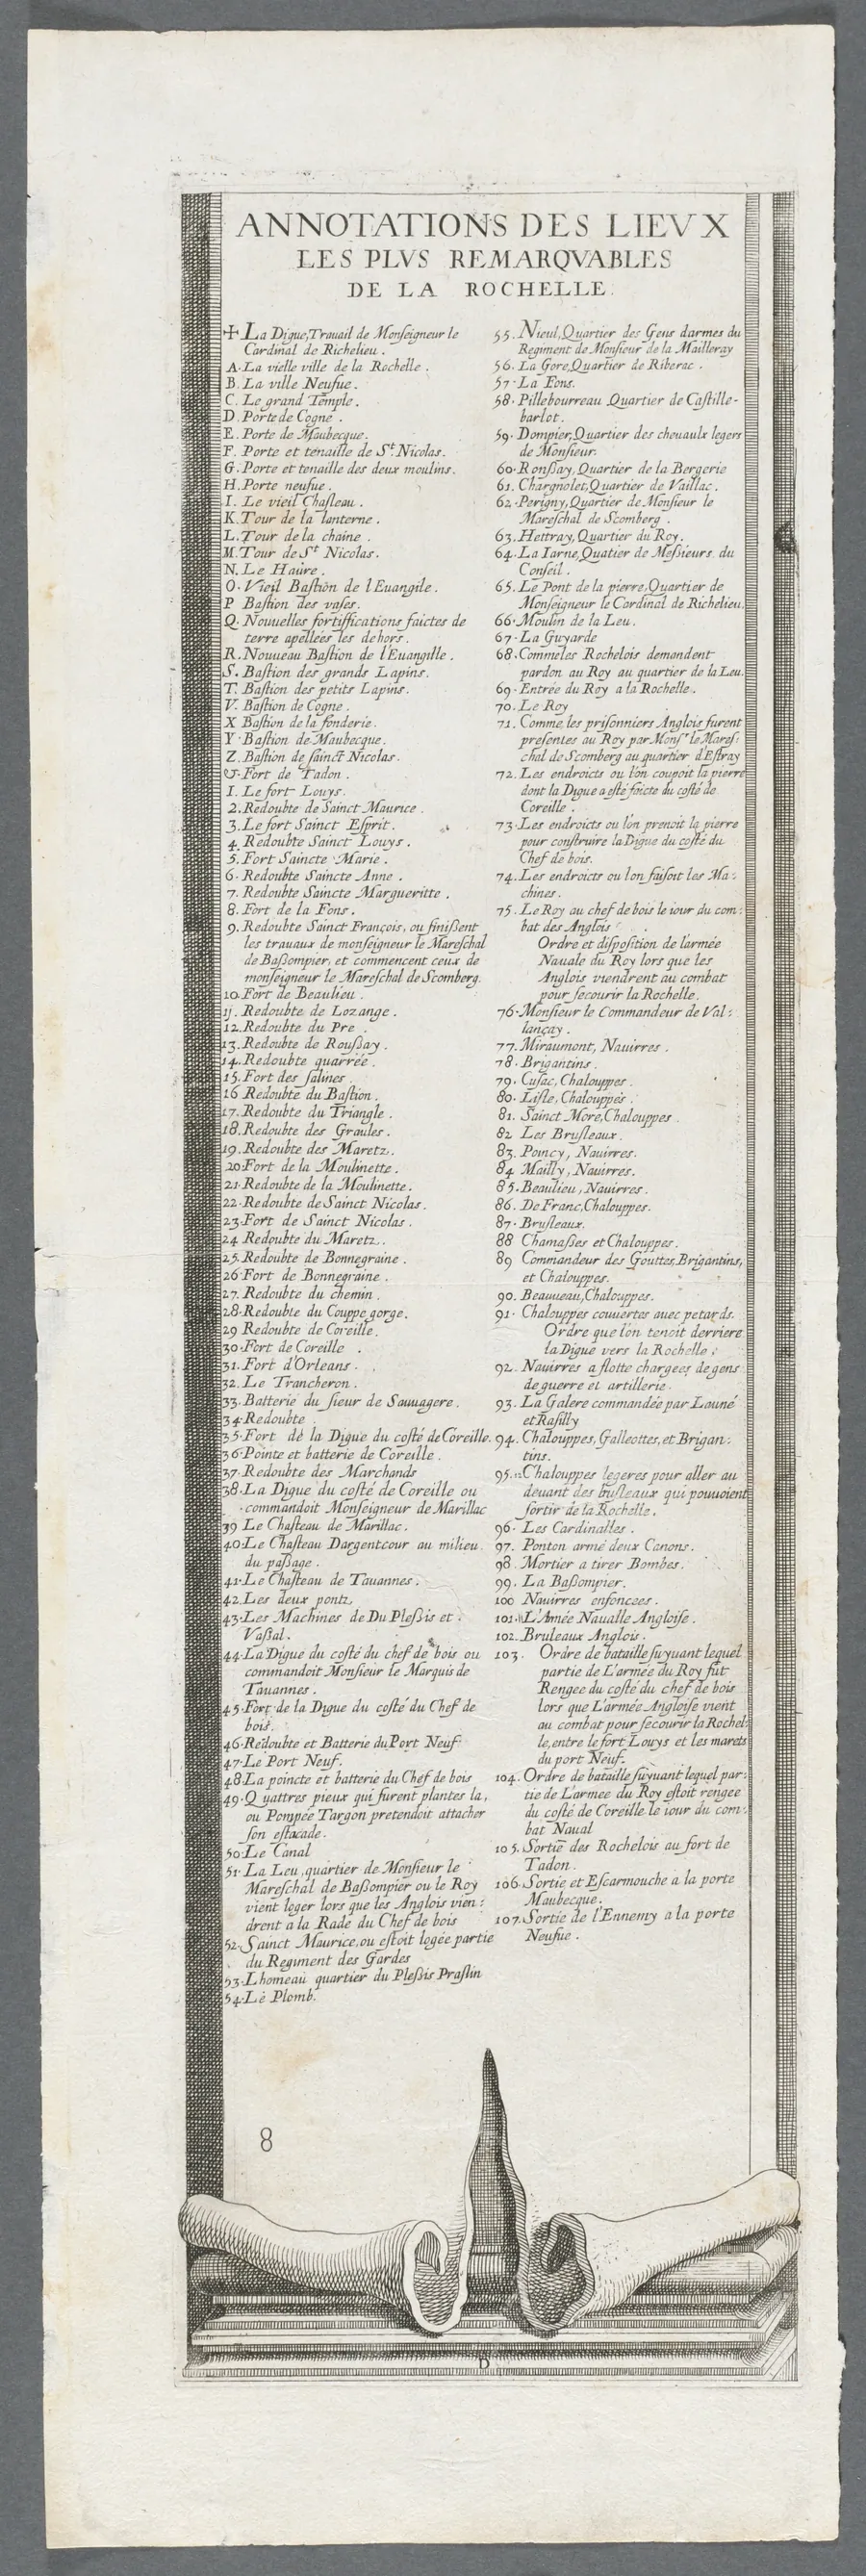 ANNOTATIONS DES LIEVX
LES PLVS REMARQVABLES
DE LA ROCHELLE.
✢ La Digue, Trauail de Monſeigneur le
Cardinal de Richelieu.
A. La vielle ville de la Rochelle.
B. La ville Neufue.
C. Le grand Temple.
D. Porte de Cogne.
E. Porte de Maubecque.
F. Porte et tenaille de St Nicolas.
G. Porte et tenaille des deux moulins.
H. Porte neufue.
I. Le vieil Chaſteau.
K. Tour de la lanterne.
L. Tour de la chaine.
M. Tour de St Nicolas.
N. Le Haûre.
O. Vieil Baſtion de l'Euangile.
P Baſtion des vaſes.
Q. Nouuelles fortiffications faictes de
terre apellées les dehors.
R. Nouueau Baſtion de l'Euangille.
S. Baſtion des grands Lapins.
T. Baſtion des petits Lapins.
V. Baſtion de Cogne.
X Baſtion de la fonderie.
Y Baſtion de Maubecque.
Z. Baſtion de ſainct Nicolas.
&. Fort de Tadon.
1. Le fort Louys.
2. Redoube de Sainct Maurice.
3. Le fort Sainct Eſprit.
4. Redoubte Sainct Louys.
5. Fort Saincte Marie.
6. Redoubte Saincte Anne.
7. Redoubte Saincte Margueritte.
8. Fort de la Fons.
9. Redoubte Sainct François, ou finißent
les trauaux de monſeigneur le Mareſchal
de Baßompier, et commencent ceux de
monſeigneur le Mareſchal de Scomberg.
10. Fort de Beaulieu.
11. Redoubte de Lozange.
12. Redoubte du Pre.
13. Redoubte de Roußay.
14. Redoubte quarrée.
15. Fort des ſalines.
16 Redoubte du Baſtion.
17. Redoubte du Triangle.
18. Redoubte des Graules.
19. Redoubte des Maretz.
20. Fort de la Moulinette.
21. Redoubte de la Moulinette.
22. Redoubte de Sainct Nicolas.
23. Fort de Sainct Nicolas.
24 Redoubte du Maretz.
25. Redoubte de Bonnegraine.
26 Fort de Bonnegraine.
27. Redoubte du chemin.
28. Redoubte du Couppe gorge.
29 Redoubte de Coreille.
30. Fort de Coreille.
31. Fort d'Orleans.
32. Le Trancheron.
33. Batterie du ſieur de Sauuagere.
34. Redoubte
35. Fort de la Digue du coſté de Coreille.
36. Pointe et batterie de Coreille.
37. Redoubte des Marchands
38. La Digue du coſté de Coreille ou
commandoit Monſeigneur de Marillac
39 Le Chaſteau de Marillac.
40. Le Chaſteau Dargentcour au milieu
du paßage.
41. Le Chaſteau de Tauannes.
42. Les deux pontz.
43. Les Machines de Du Pleßis et
Vaßal.
44. La Digue du coſté du chef de bois ou
commandoit Monſieur le Marquis de
Tauannes.
45. Fort de la Digue du coſté du Chef de
bois.
46. Redoubte et Batterie du Port Neuf
47. Le Port Neuf.
48. La poincte et batterie du Chef de bois
49. Quattres pieux qui furent plantes la,
ou Pompée Targon pretendoit attacher
ſon eſtacade.
50. Le Canal
51. La Leu, quartier de Monſieur le
Mareſchal de Baßompier ou le Roy
vient loger lors que les Anglois vien:
drent a la Rade du Chef de bois
52. Sainct Maurice, ou eſtoit logée partie
du Regiment des Gardes
53. Lhomeau quartier du Pleßis Praſlin
54. Le Plomb.
55. Nieul, Quartier des Gens darmes du
Regiment de Monſieur de la Mailleray
56. La Gore, Quartier de Riberac.
57. La Fons.
58. Pillebourreau Quartier de Caſtille-
barlot.
59. Dompier, Quartier des cheuaulx legers
de Monſieur.
60. Ronßay, Quartier de la Bergerie
61. Chargnolet, Quartier de Vaillac.
62. Perigny, Quartier de Monſieur le
Mareſchal de Scomberg.
63. Hettray, Quartier du Roy.
64. La Iarne, Quatier de Meßieurs du
Conſeil.
65. Le Pont de la pierre, Quartier de
Monſeigneur le Cardinal de Richelieu.
66. Moulin de la Leu.
67. La Guyarde
68. Comme les Rochelois demandent
pardon au Roy au quartier de la Leu.
69. Entrée du Roy a la Rochelle.
70. Le Roy
71. Comme les priſonniers Anglois furent
preſentes au Roy par Monsr le Mareſ:
chal de Scomberg au quartier d'Eſtray
72. Les endroicts ou l'on coupoit la pierre
dont la Digue a eſté faicte du coſté de
Coreille.
73. Les endroicts ou l'on prenoit la pierre
pour conſtruire la Digue du coſté du
Chef de bois.
74. Les endroicts ou l'on faiſoit les Ma:
chines.
75. Le Roy au chef de bois le iour du com:
bat des Anglois
Ordre et diſpoſition de l'armée
Nauale du Roy lors que les
Anglois viendrent au combat
pour ſecourir la Rochelle.
76. Monſieur le Commandeur de Val:
lançay.
77. Miraumont, Nauirres.
78. Brigantins.
79. Cuſac, Chalouppes.
80. Liſle, Chalouppes.
81. Sainct More, Chalouppes.
82 Les Bruſleaux.
83. Poincy, Nauirres.
84 Mailly, Nauirres.
85. Beaulieu, Nauirres.
86. De Franc, Chalouppes.
87. Bruſleaux.
88 Chamaßes et Chalouppes.
89 Commandeur des Gouttes, Brigantins,
et Chalouppes.
90. Beauueau, Chalouppes.
91. Chalouppes couuertes auec petards.
Ordre que l'on tenoit derriere
la Digue vers la Rochelle.
92. Nauirres a flotte chargees de gens
de guerre et artillerie.
93. La Galere commandée par Launé
et Raſilly
94. Chalouppes, Galleottes, et Brigan:
tins.
95. Chalouppes legeres pour aller au
deuant des bruſleaux qui pouuoient
ſortir de la Rochelle.
96. Les Cardinalles.
97. Ponton armé deux Canons.
98. Mortier a tirer Bombes.
99. La Baßompier.
100 Nauirres enfoncees.
101. L'Amée Naualle Angloiſe.
102. Bruleaux Anglois.
103. Ordre de bataille ſuyuant lequel
partie de L'armée du Roy fut
Rengee du coſté du chef de bois
lors que L'armée Angloiſe vient
au combat pour ſecourir la Rochel:
le, entre le fort Louys et les marets
du port Neuf.
104. Ordre de bataille ſuyuant lequel par:
tie de L'armee du Roy eſtoit rengee
du coſté de Coreille le iour du com:
bat Naual
105. Sortie des Rochelois au fort de
Tadon.
106. Sortie et Eſcarmouche a la porte
Maubecque.
107. Sortie de l'Ennemy a la porte
Neufue.
8
D